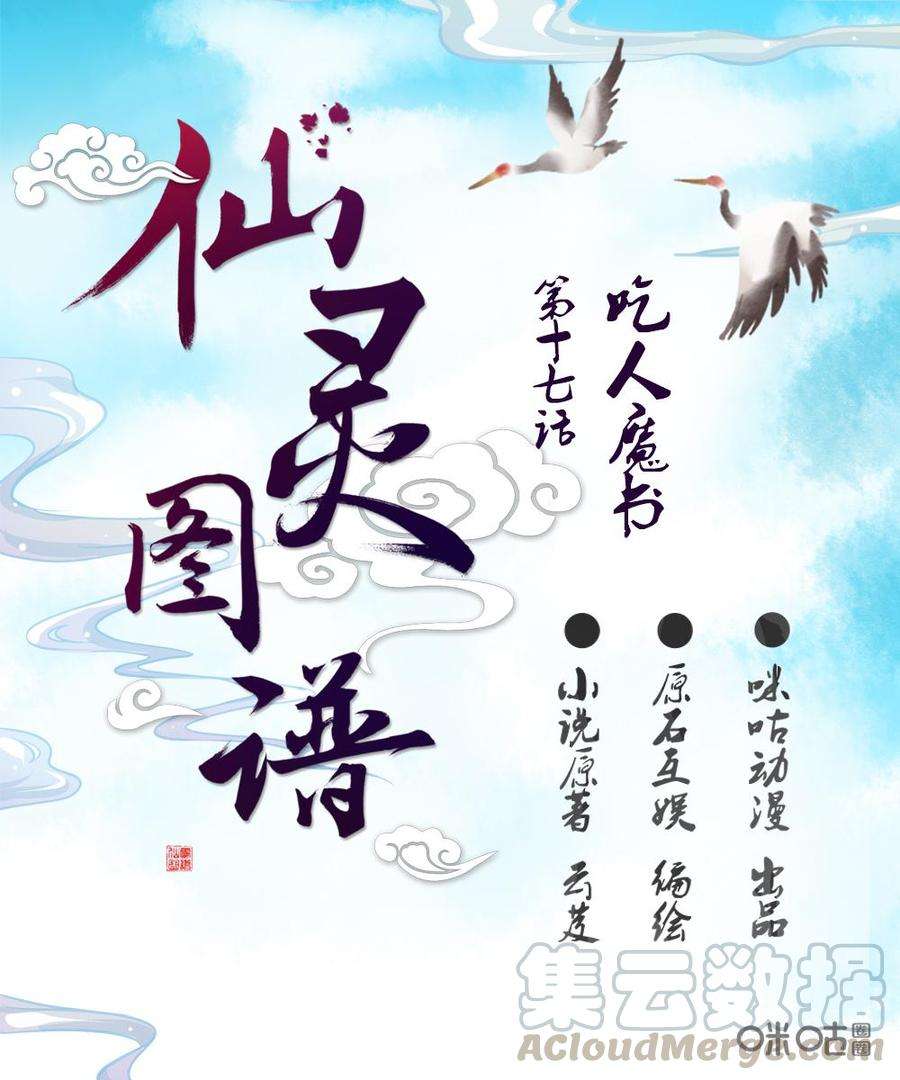 仙灵图谱
吃人魔书
第十七话
咪咕动漫 出品
原石互娱 编绘
小说原著 云芨
集云数据
ACloudMerge.com
咪咕圈圈